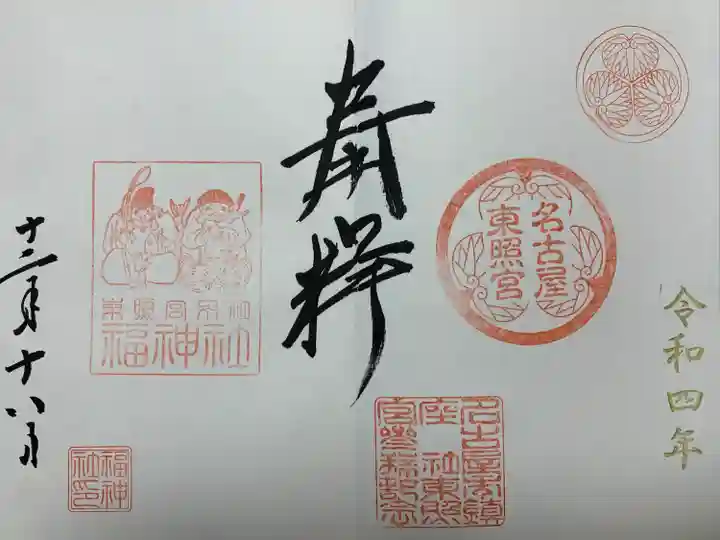 令和四年
名古屋
東照宮
名古屋市鎮
座 社東照
奉拝
東照宮末社
福神社
福神
社印
十二月十八日